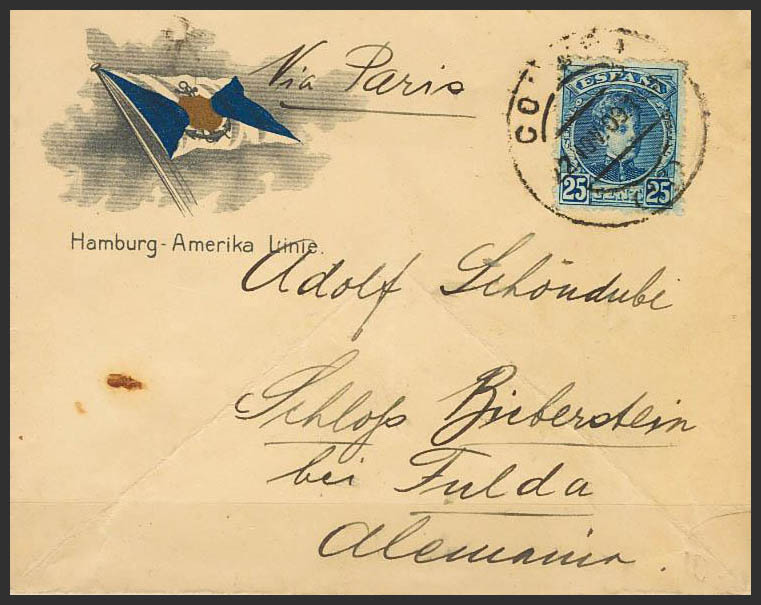 Via Paris
ESPAÑA
25 CENT 25
Hamburg-Amerika Linie.
Adolf Schöndube
Schloß Bieberstein
bei Fulda
Alemania.